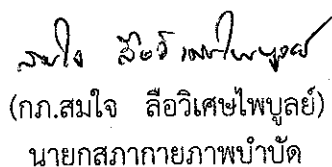 สมใจ ลือวิเศษไพบูลย์
(กภ.สมใจ ลือวิเศษไพบูลย์)
นายกสภากายภาพบำบัด